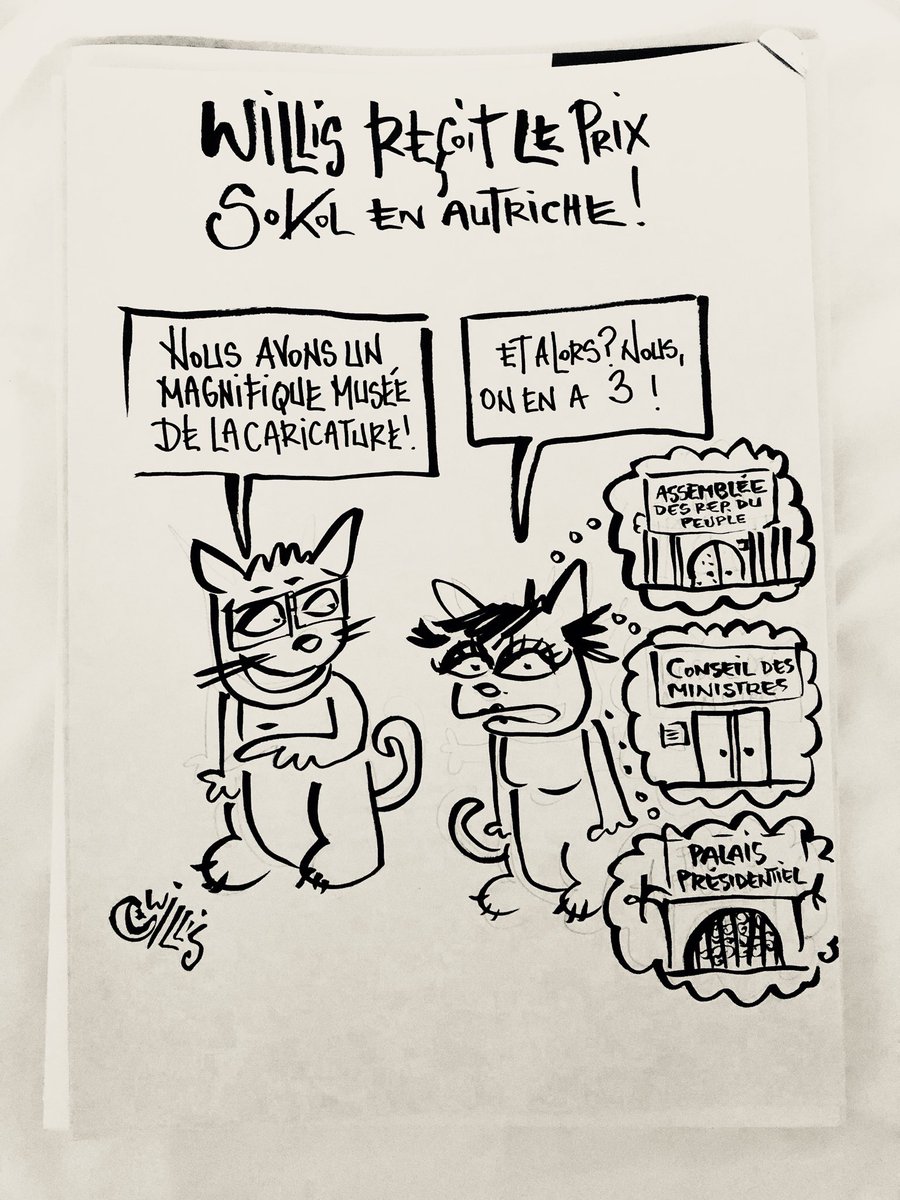 WILLIS REÇOIT LE PRIX
SOKOL EN AUTRICHE !
NOUS AVONS UN
MAGNIFIQUE MUSÉE
DE LA CARICATURE !
ET ALORS ? NOUS,
ON EN A 3 !
ASSEMBLÉE
DES REP. DU
PEUPLE
CONSEIL DES
MINISTRES
PALAIS
PRÉSIDENTIEL
WILLIS